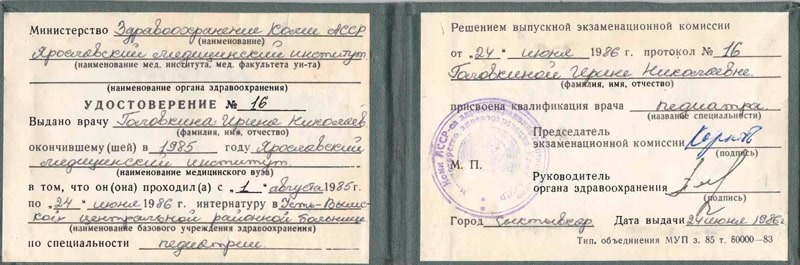 Министерство Здравоохранение Коми АССР
(наименование)
Ярославский медицинский институт
(наименование мед. института, мед. факультета ун-та)
(наименование органа здравоохранения)
УДОСТОВЕРЕНИЕ № 16
Выдано врачу Головкина Ирина Николаев
(фамилия, имя, отчество)
окончившему (шей) в 1985 году Ярославский
медицинский институт.
(наименование медицинского вуза)
в том, что он (она) проходил (а) с „1“ августа 1985 г.
по „24“ июня 1986 г. интернатуру в Усть-Вымс-
кой центральной районной больнице
(наименование базового учреждения здравоохранения)
по специальности педиатрии.
Решением выпускной экзаменационной комиссии
от „24“ июня 1986 г. протокол № 16
Головкиной Ирине Николаевне.
(фамилия, имя, отчество)
присвоена квалификация врача педиатра.
(название специальности)
Председатель
экзаменационной комиссии
(подпись)
М. П.
Руководитель
органа здравоохранения
(подпись)
Город Сыктывкар Дата выдачи 24 июня 1986 г.
Тип. объединения МУП з. 85 т. 80000—83